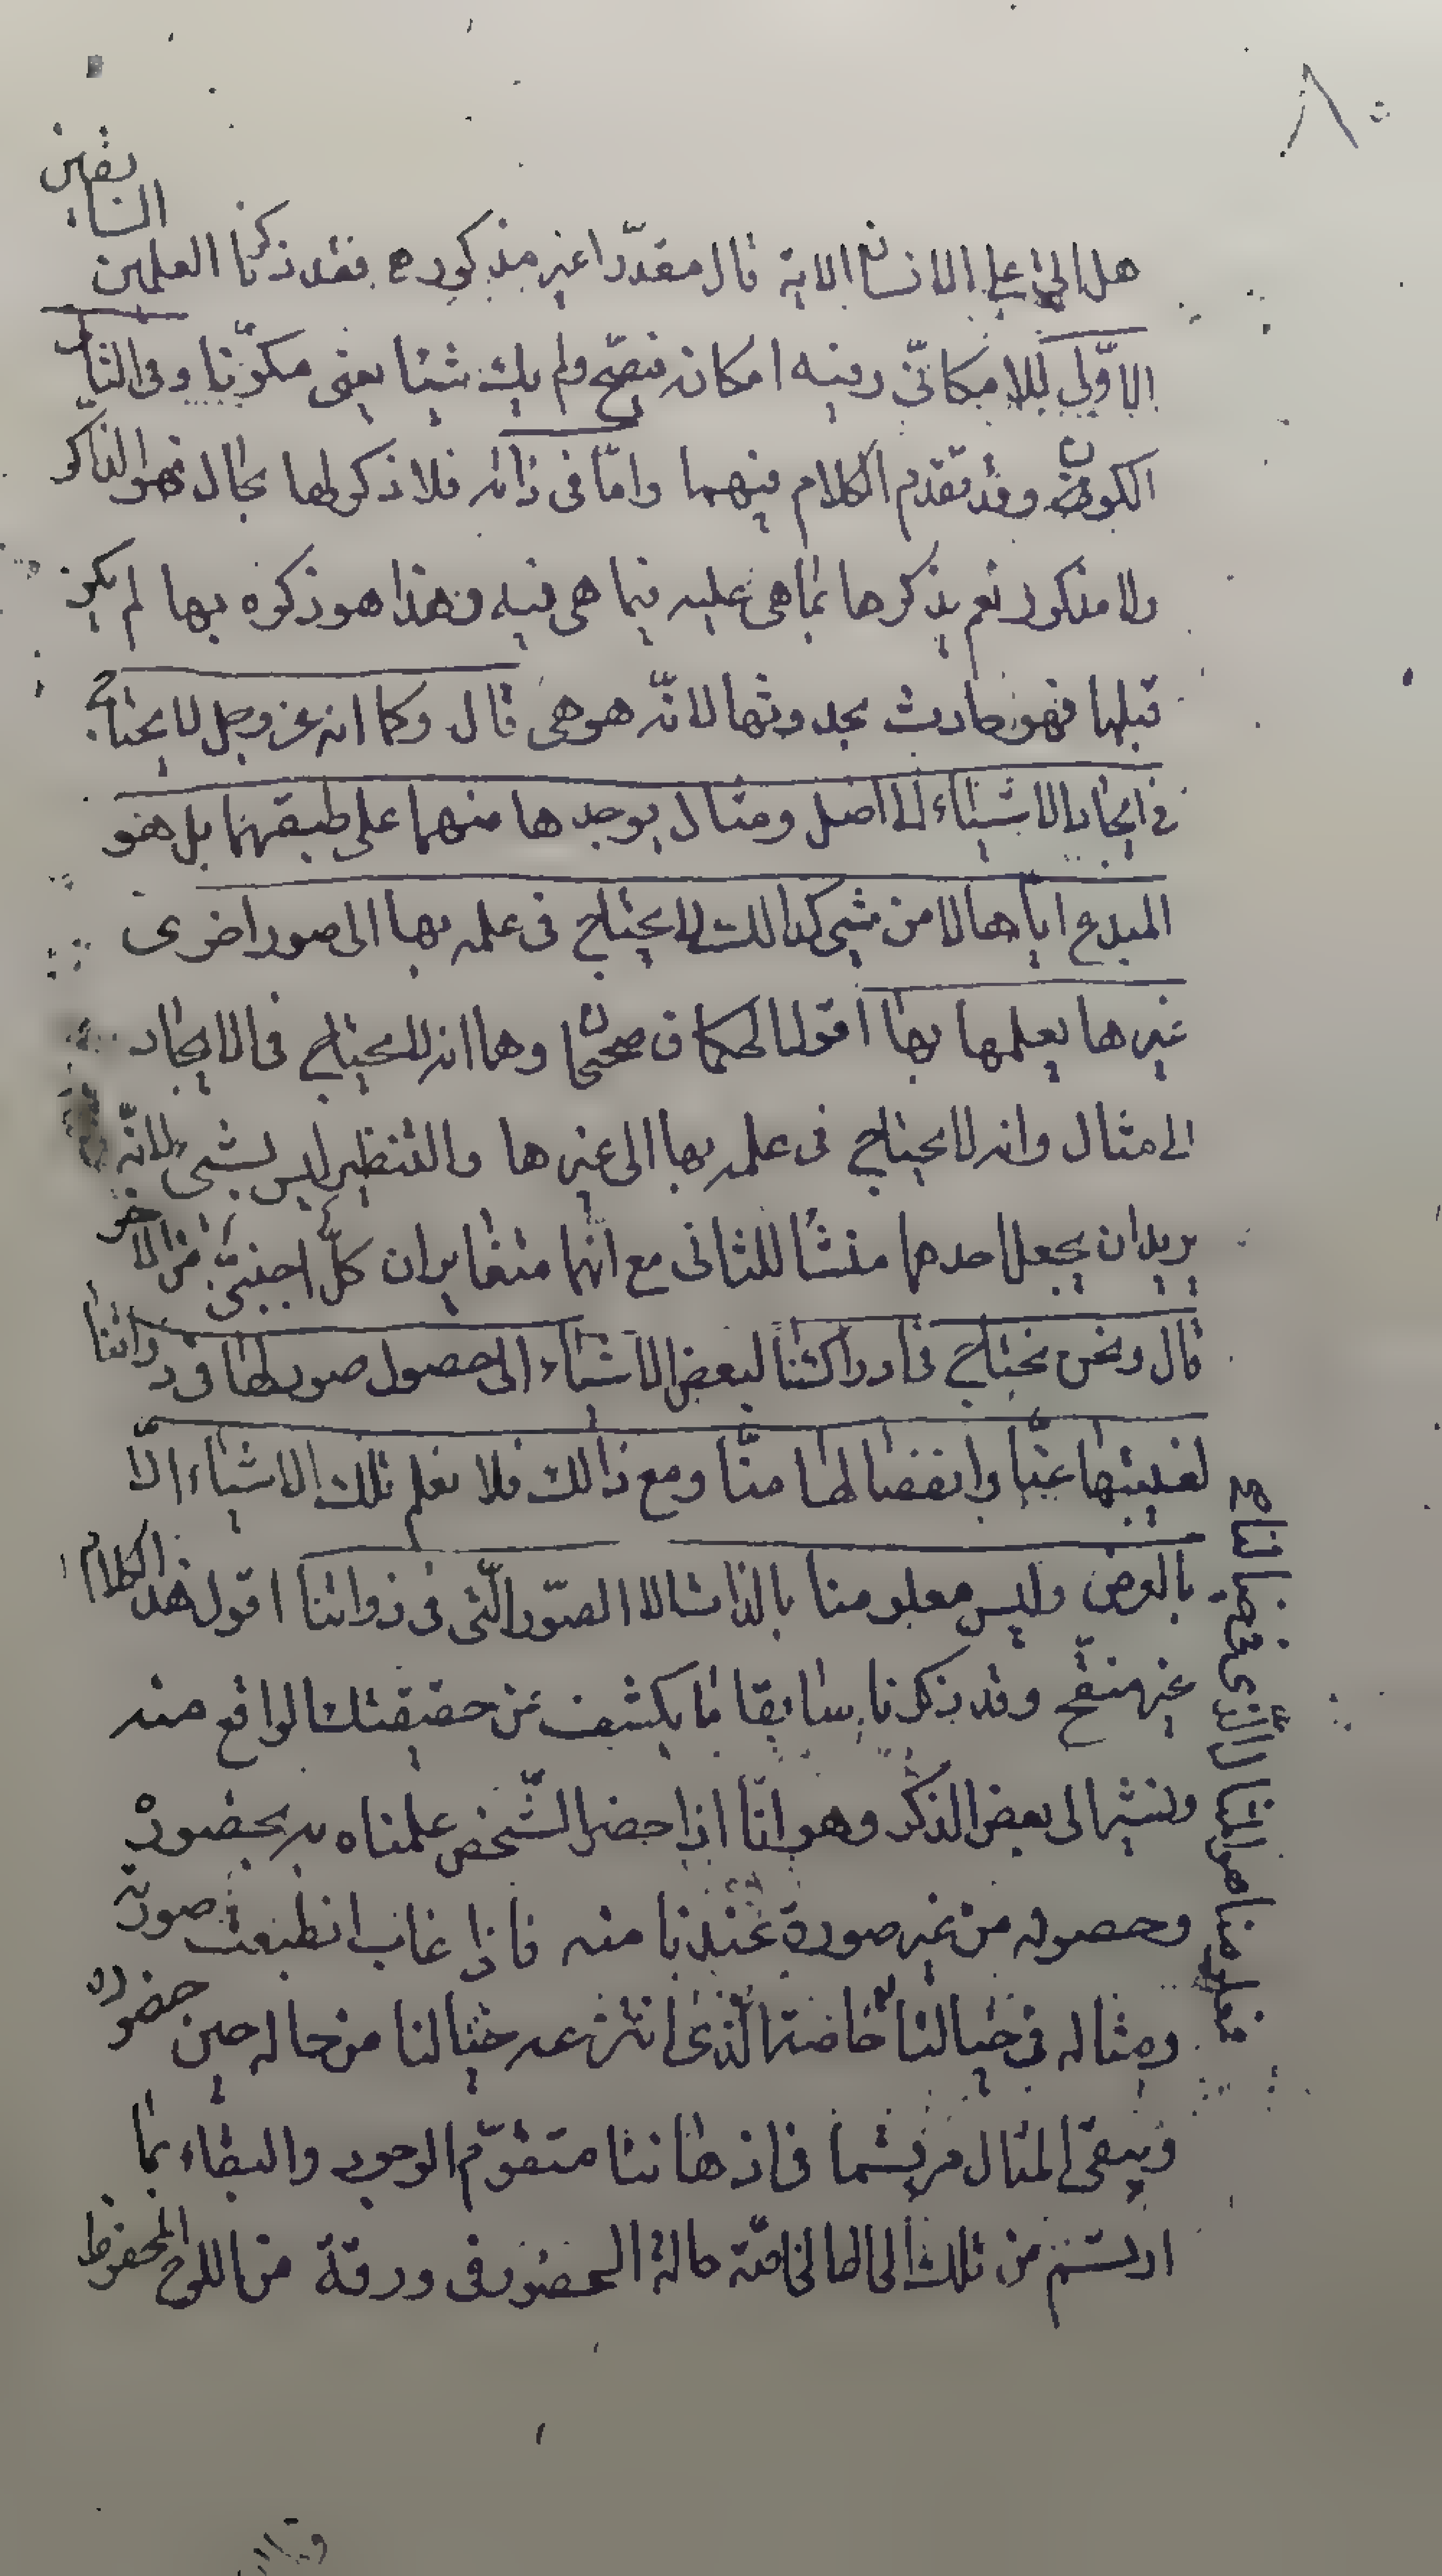 ٨٠
هل اتى على الانسان الاية قال مقدّرا غير مذكور ه فقد ذكرنا العلمين السابقين
الاوّل للامكانّى وفيه امكانه فيصحّ ولم يك شيئا يعنى مكوّنا وفى الثانى
الكونى وقد تقدم الكلام فيهما وامّا فى ذاته فلا ذكر لها بحال فهو الذاكر
ولا مذكور نعم يذكرها بما هى عليه فيما هى فيه وهذا هو ذكره بها لم يكن
قبلها فهو حادث بحدوثها لانّه هو هى قال وكما انه عز وجل لا يحتاج
فى ايجاد الاشياء الى اصل ومثال يوجدها منهما على طبقهما بل هو
المبدع ايّاها لا من شىء كذلك لا يحتاج فى علمه بها الى صور اخرى
غيرها يعلمها بها اقول الحكمان صحيحان وهما انه لا يحتاج فى الايجاد
الى مثال وانه لا يحتاج فى علمه بها الى غيرها والتنظير ليس بشىء لانّه
يريد ان يجعل احدهما منشأ للثانى مع انّهما متغايران كلّ اجنبىّ من الاخر
قال ونحن نحتاج فى ادراكنا لبعض الاشياء الى حصول صور لها فى ذواتنا
لغيبتها عنّا وانفصالها منّا ومع ذالك فلا نعلم تلك الاشياء الّا
بالعرض وليس معلومنا بالذات الا الصّور الّتى فى ذواتنا اقول هذا الكلام
غير منقّح وقد ذكرنا سابقا ما يكشف عن حقيقتك الواقع منه
ونشير الى بعض الذكر وهو انّا اذا حضر الشّخص علمناه به بحضوره
وحصوله من غير صورة عندنا منه فاذا غاب انطبعت صورته
ومثاله فى خيالنا خاصة الّذى انتزعه خيالنا من حاله حين حضوره
ويبقى المثال مرتسما فى اذهاننا متقوّم الوجود والبقاء بما
ارتسم من تلك الحالة الخاصّة حالة الحضور فى ورقة من اللوح المحفوظ
فمعلومنا هو المثال الّذى فى خيالنا ع